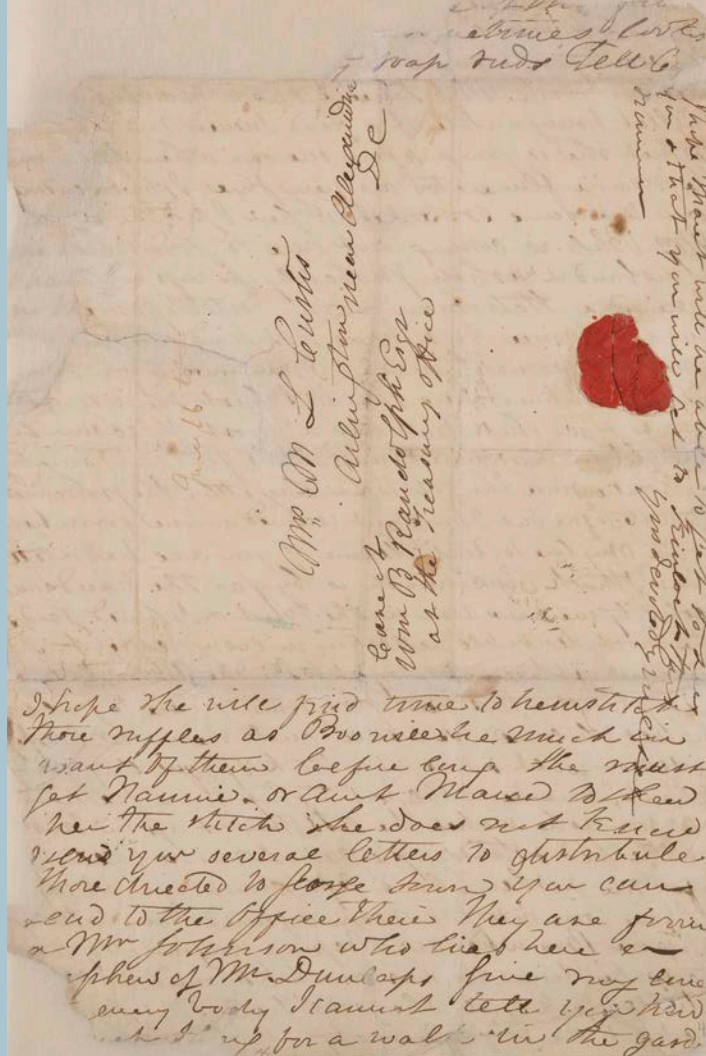 sometimes looks
soap suds Tell C
I hope Mary will be able to get to see
you & that you will get to Kinloch this
summer
Mrs M L Custis
Arlington near Alexandria
DC
Care of
Wm B Randolph Esqr
at the Treasury office
I hope she will find time to hemstitch
those ruffles as Boo will be much in
want of them before long She must
get Nannie or Aunt Maria to shew
her the stitch she does not know
I send you several letters to distribute
those directed to George Town you can
send to the office there They are from
a Mr Johnson who lives here a
nephew of Mr Dunlaps Give my love
every body I cannot tell you how
for a walk in the gard